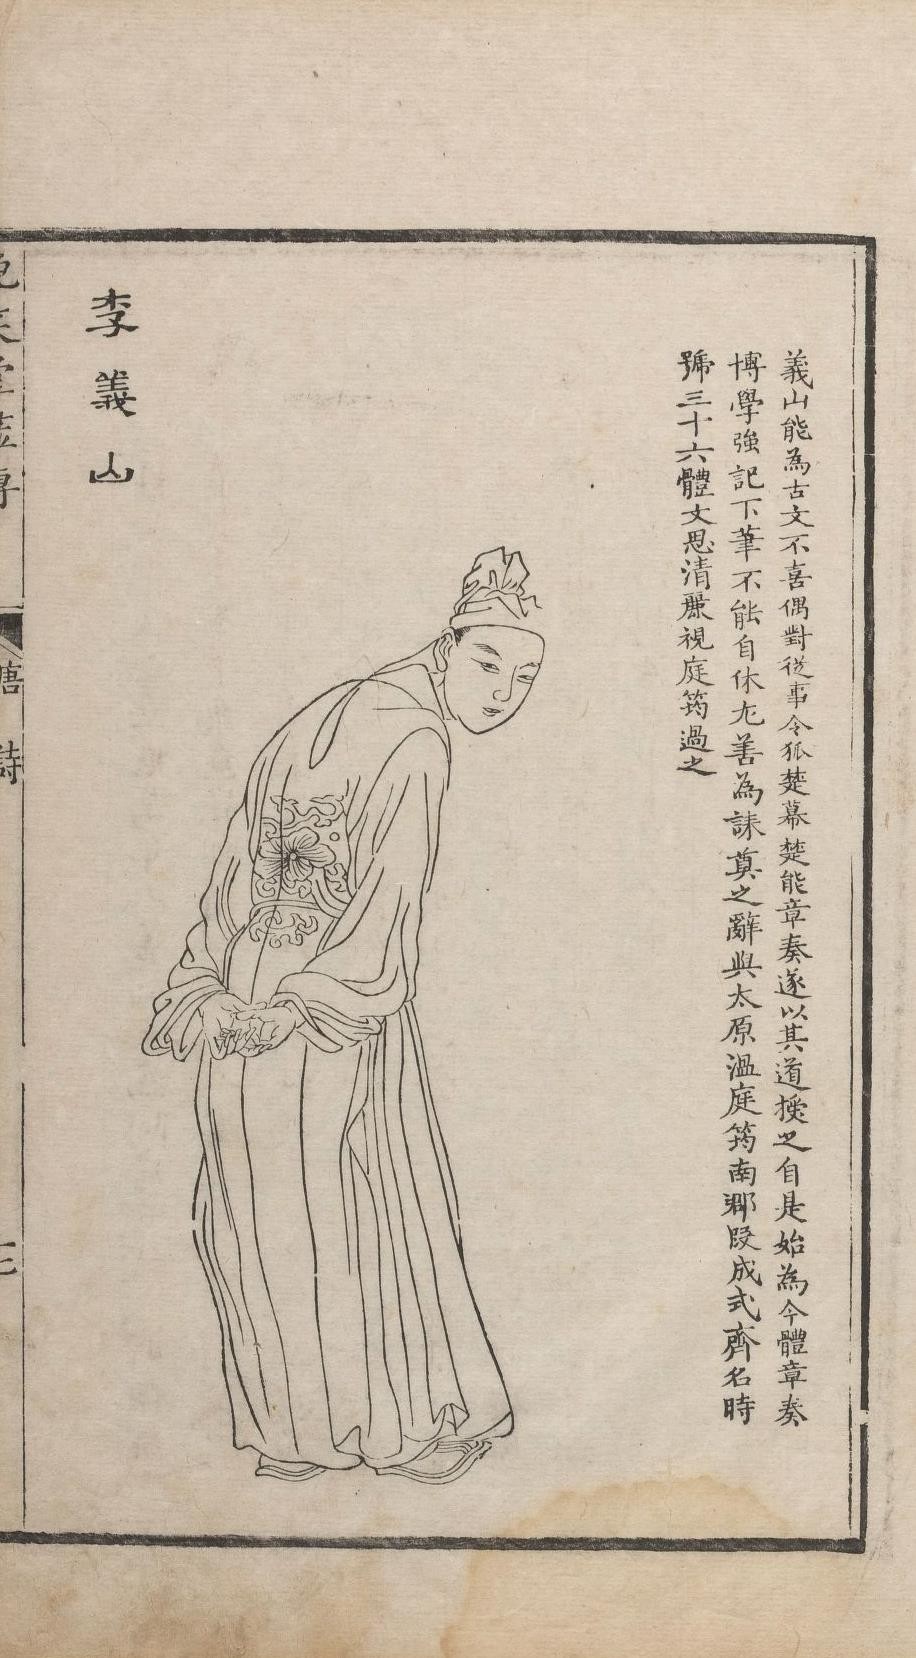 義山能為古文不喜偶對從事令狐楚幕楚能章奏遂以其道授之自是始為今體章奏
博學強記下筆不能自休尤善為誄奠之辭與太原溫庭筠南郡段成式齊名時
號三十六體文思清麗視庭筠過之
李義山
晚笑堂畫傳
唐 詩